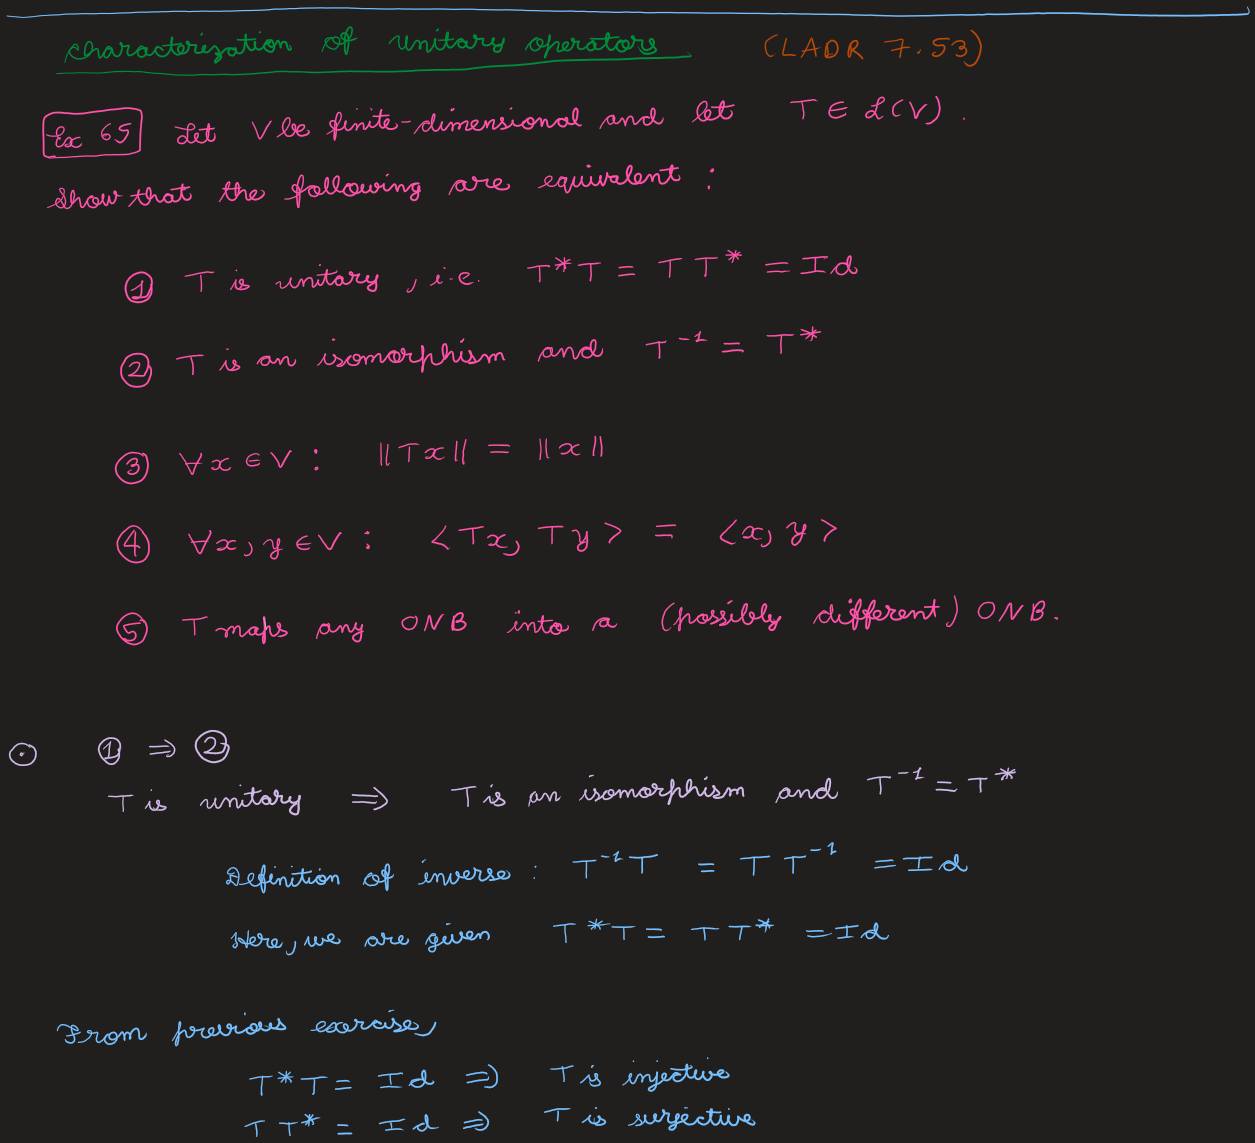 Characterization of unitary operators (LADR 7.53)
Ex 65 Let V be finite-dimensional and let T ∈ L(V).
Show that the following are equivalent :
① T is unitary, i.e. T*T = TT* = Id
② T is an isomorphism and T⁻¹ = T*
③ ∀x ∈ V : ||Tx|| = ||x||
④ ∀x, y ∈ V : <Tx, Ty> = <x, y>
⑤ T maps any ONB into a (possibly different) ONB.
⊙ ① ⇒ ②
T is unitary ⇒ T is an isomorphism and T⁻¹ = T*
Definition of inverse : T⁻¹T = TT⁻¹ = Id
Here, we are given T*T = TT* = Id
From previous exercise,
T*T = Id ⇒ T is injective
TT* = Id ⇒ T is surjective